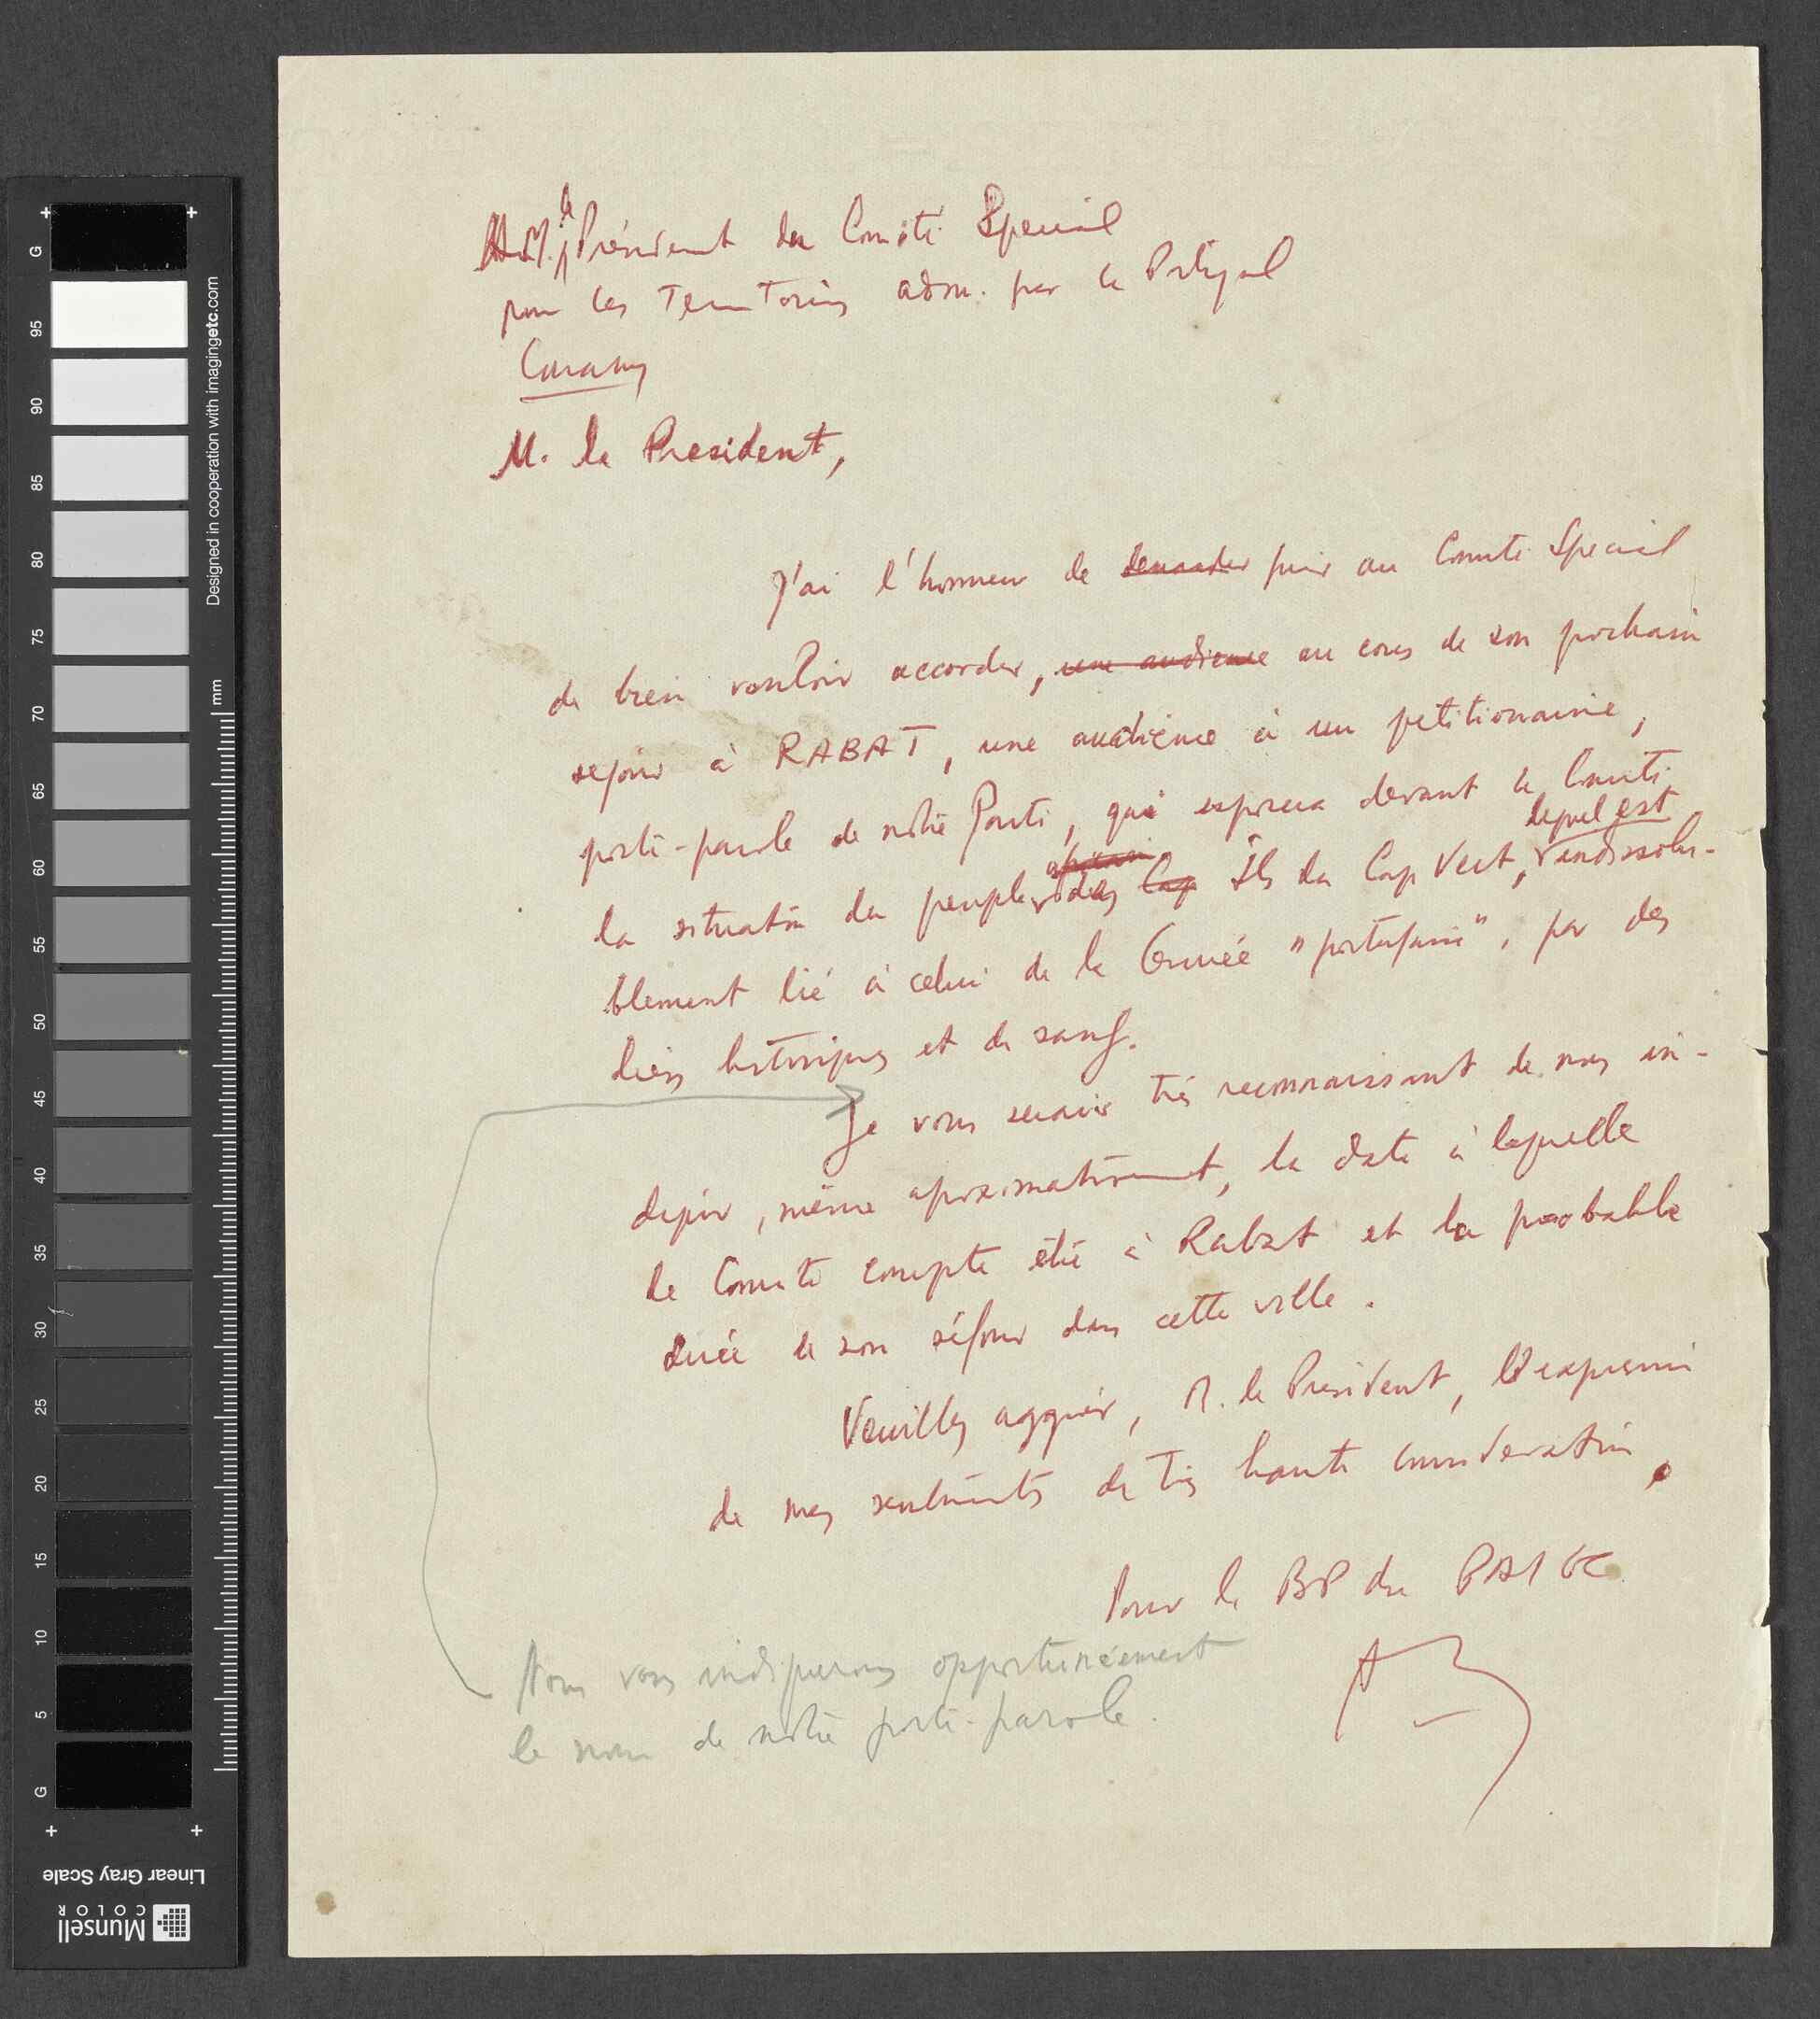 M. le Président du Comité Special
pour les Territoires adm. par le Portugal
Conakry
M. le President,
J'ai l'honneur de demander prier au Comité Special
de bien vouloir accorder, une audience au cours de son prochain
sejour à RABAT, une audience à un petitionaire,
porte-parole de notre Parti, qui exposera devant le Comité
la situation du peuple des Cap Iles du Cap Vert, lequel est indissolu-
blement lié à celui de la Guinée "portugaise", par des
liens historiques et de sang.
Je vous serais très reconnaissant de nous in-
diquer, même aproximativement, la date à laquelle
le Comité compte être à Rabat et la probable
durée de son séjour dans cette ville.
Veuillez aggréer, M. le President, l'expression
de mes sentiments de très haute consideration.
Pour le BP du PAIGC
Nous vous indiquerons opportunéement
le nom de notre porte-parole.
Designed in cooperation with imagingetc.com
mm
G
95
90
85
80
75
70
65
60
55
50
45
40
35
30
25
20
15
10
5
G
Linear Gray Scale
Munsell
COLOR